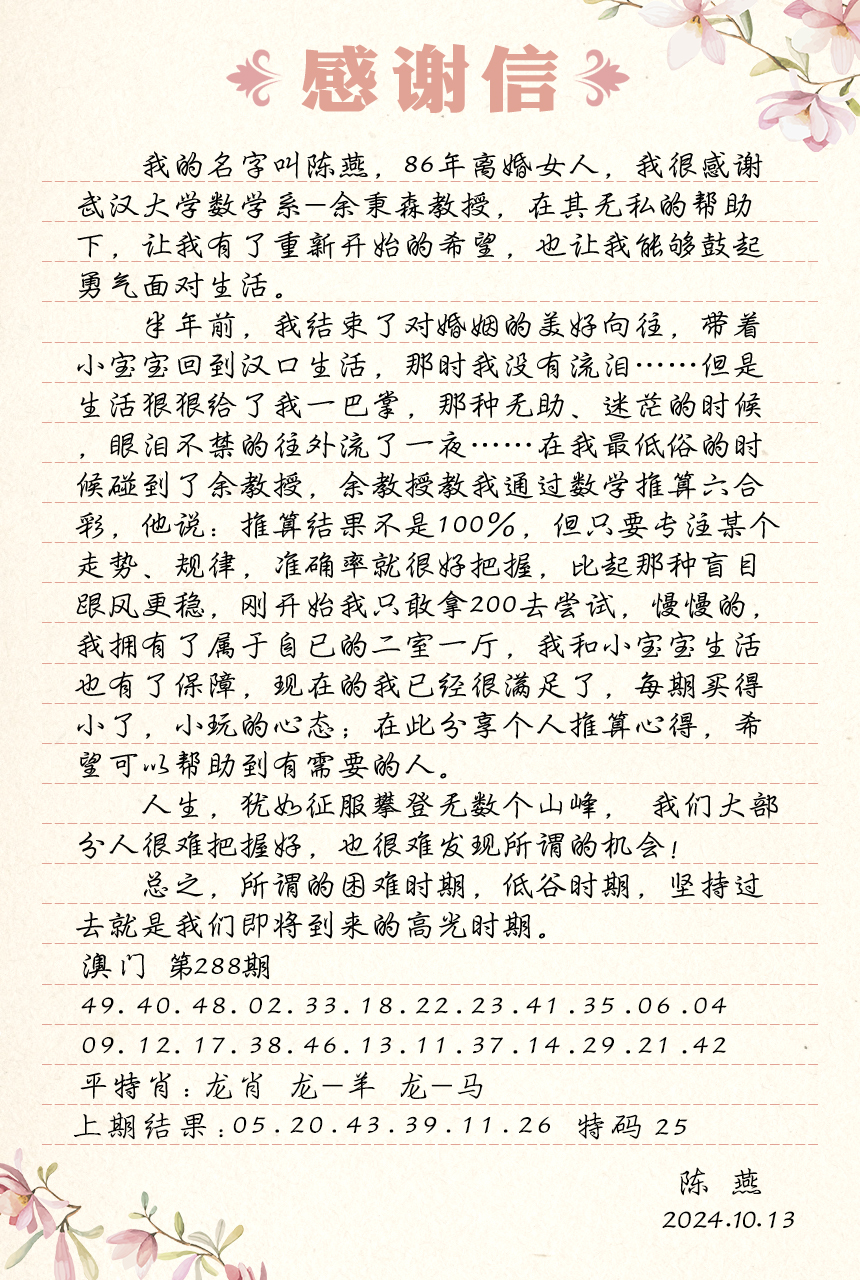 感谢信
我的名字叫陈燕，86年离婚女人，我很感谢
武汉大学数学系—余秉森教授，在其无私的帮助
下，让我有了重新开始的希望，也让我能够鼓起
勇气面对生活。
半年前，我结束了对婚姻的美好向往，带着
小宝宝回到汉口生活，那时我没有流泪……但是
生活狠狠给了我一巴掌，那种无助、迷茫的时候
，眼泪不禁的往外流了一夜……在我最低俗的时
候碰到了余教授，余教授教我通过数学推算六合
彩，他说：推算结果不是100%，但只要专注某个
走势、规律，准确率就很好把握，比起那种盲目
跟风更稳，刚开始我只敢拿200去尝试，慢慢的，
我拥有了属于自已的二室一厅，我和小宝宝生活
也有了保障，现在的我已经很满足了，每期买得
小了，小玩的心态；在此分享个人推算心得，希
望可以帮助到有需要的人。
人生，犹如征服攀登无数个山峰， 我们大部
分人很难把握好，也很难发现所谓的机会！
总之，所谓的困难时期，低谷时期，坚持过
去就是我们即将到来的高光时期。
澳门 第288期
49.40.48.02.33.18.22.23.41.35.06.04
09.12.17.38.46.13.11.37.14.29.21.42
平特肖：龙肖 龙—羊 龙—马
上期结果：05.20.43.39.11.26 特码 25
陈 燕
2024.10.13